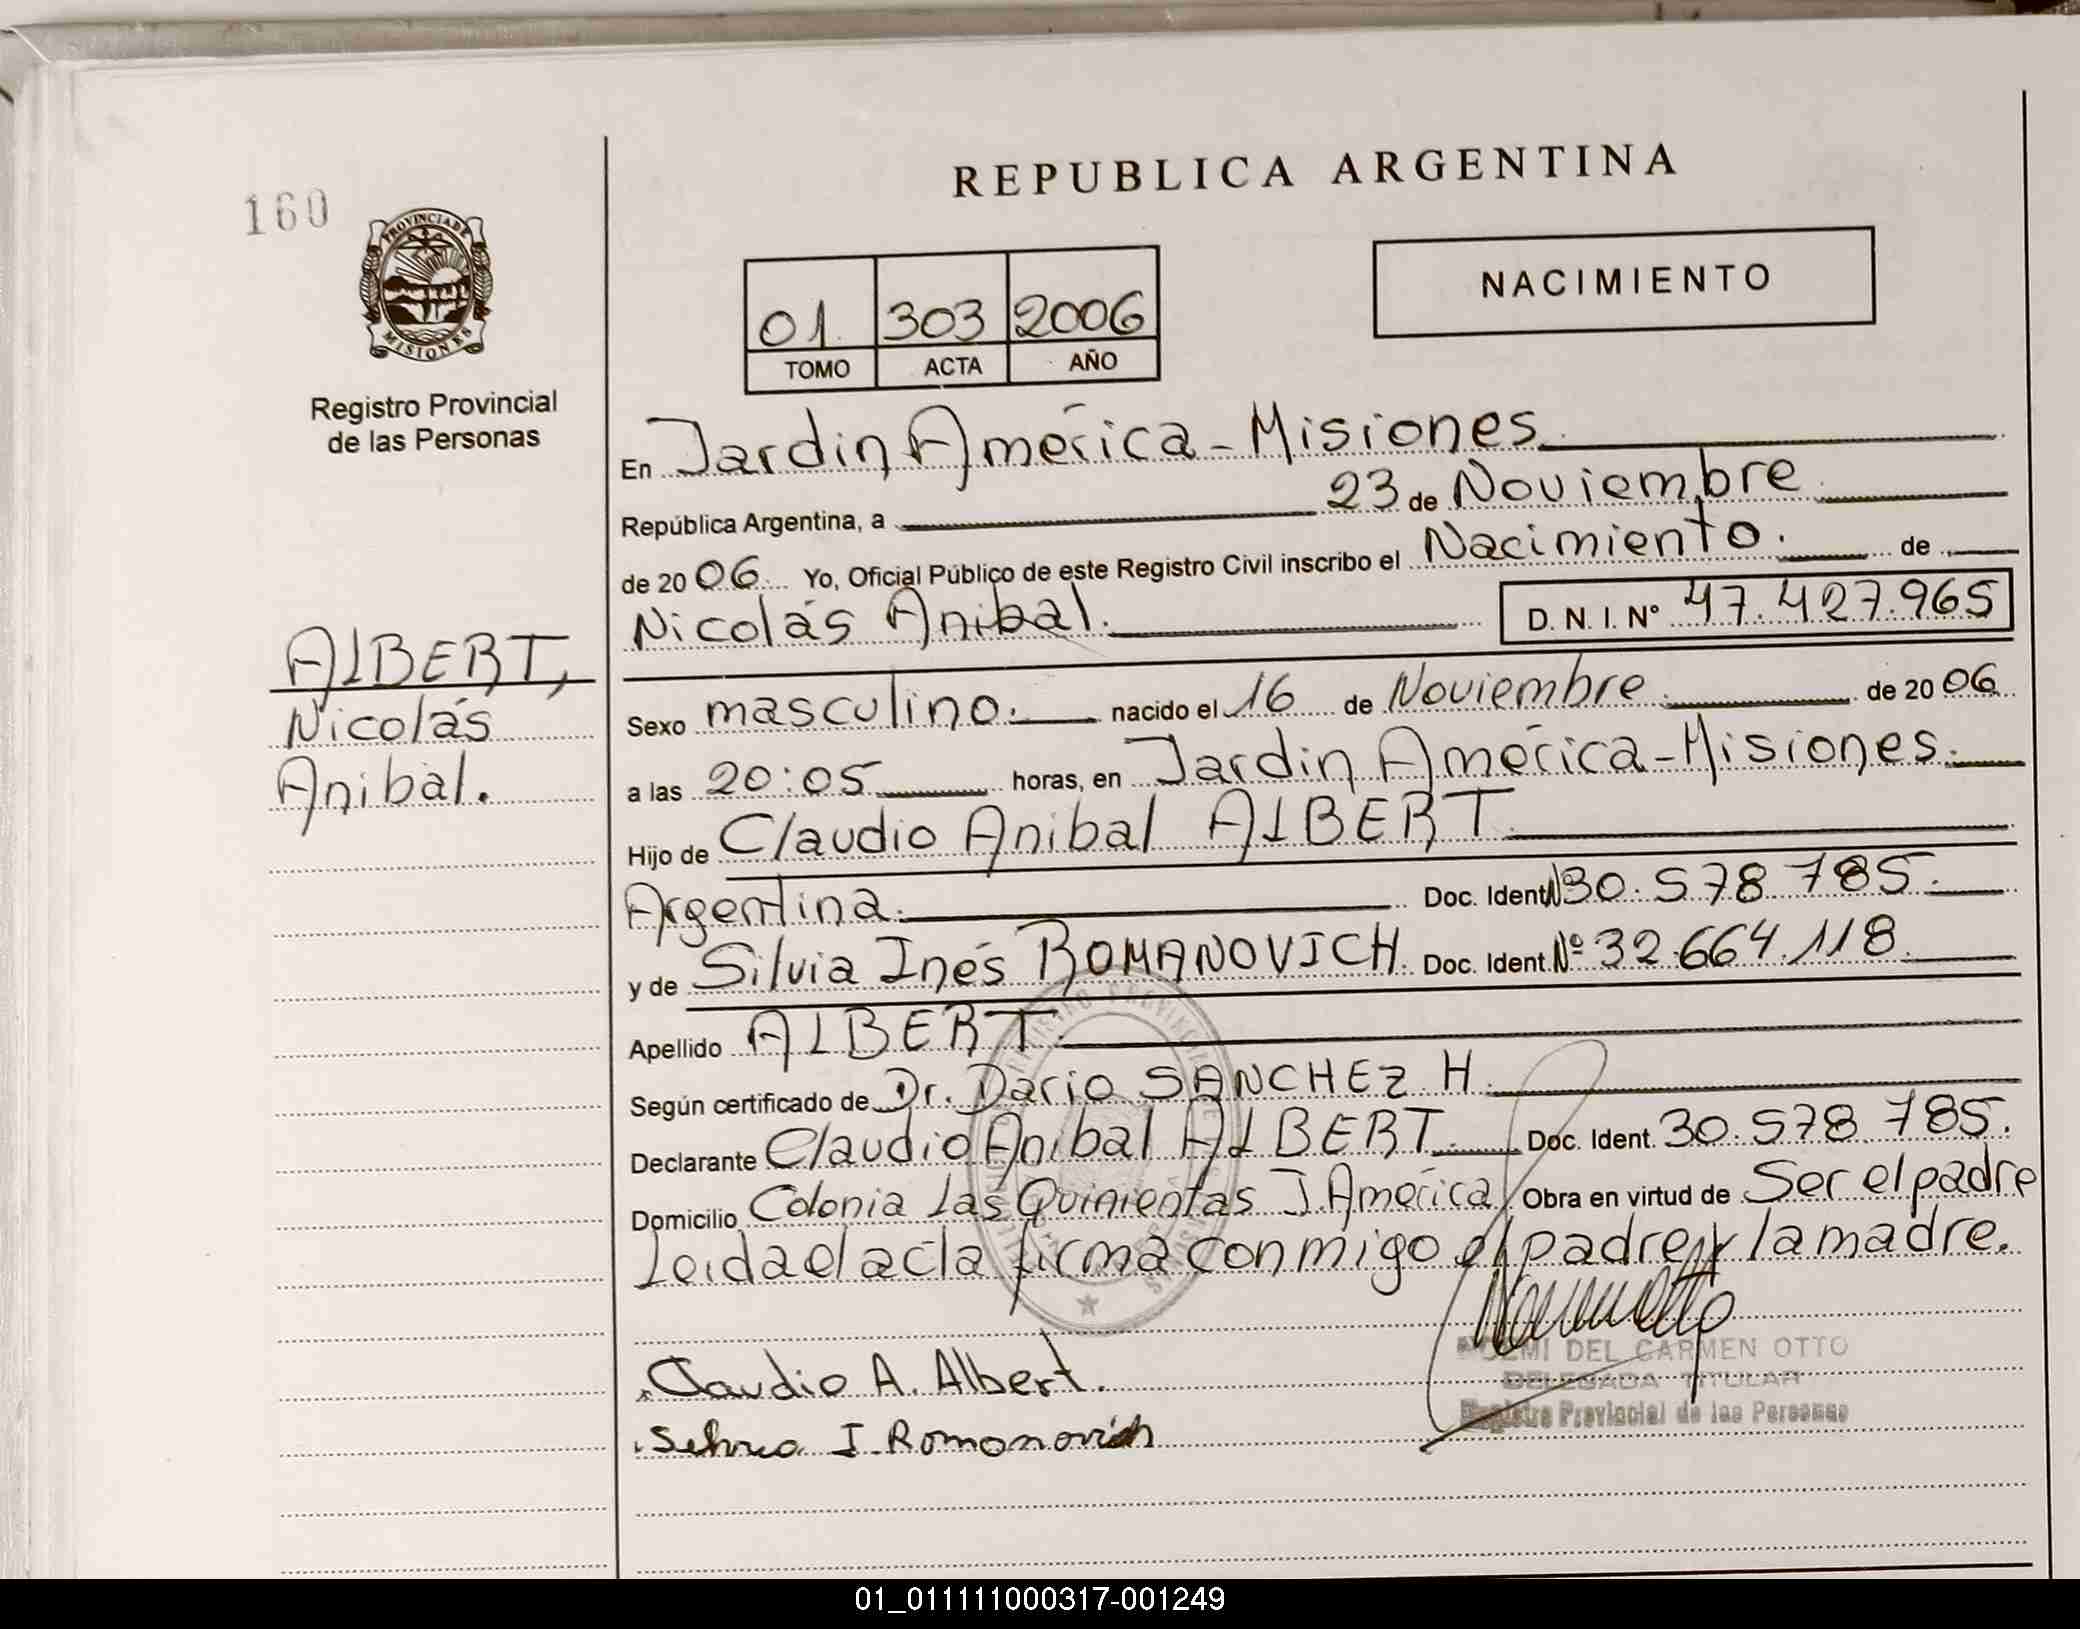 REPUBLICA ARGENTINA
160
PROVINCIA DE
MISIONES
Registro Provincial
de las Personas
NACIMIENTO
01 303 2006
TOMO ACTA AÑO
En Jardin América - Misiones
República Argentina, a 23 de Noviembre
de 2006 Yo, Oficial Público de este Registro Civil inscribo el Nacimiento. de
Nicolás Anibal. D. N. I. Nº 47.427.965
ALBERT,
Nicolás
Anibal.
Sexo masculino. nacido el 16 de Noviembre de 2006
a las 20:05 horas, en Jardin América - Misiones.
Hijo de Claudio Anibal ALBERT
Argentina. Doc. Ident. Nº 30.578.785.
y de Silvia Inés ROMANOVICH. Doc. Ident. Nº 32.664.118
Apellido ALBERT
Según certificado de Dr. Dario SANCHEZ H.
Declarante Claudio Anibal ALBERT. Doc. Ident. 30.578.785.
Domicilio Colonia Las Quinientas J. América Obra en virtud de Ser el padre
Leida el acta firma conmigo el padre y la madre.
NOEMI DEL CARMEN OTTO
DELEGADA TITULAR
Registro Provincial de las Personas
Claudio A. Albert.
I. Romanovich
01_011111000317-001249